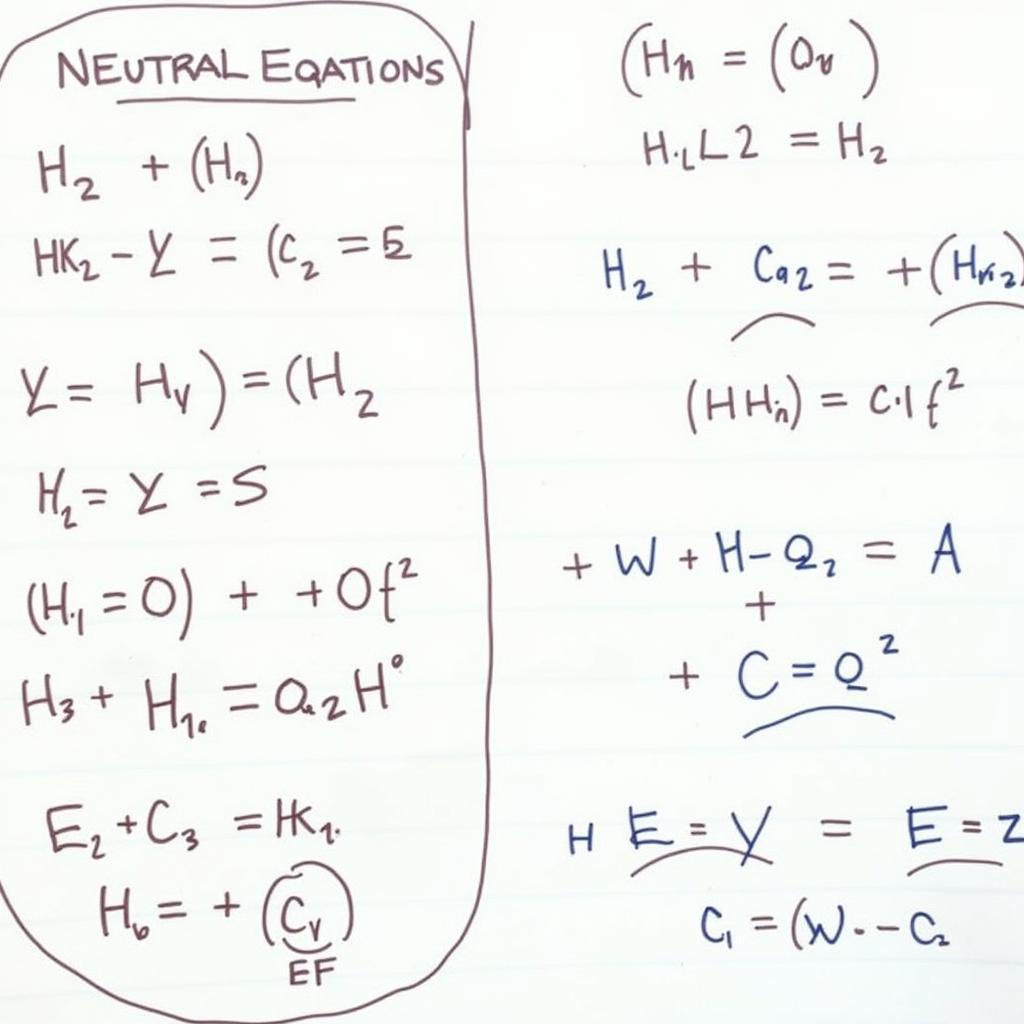 NEUTRAL EQATIONS
H₂ + (Hₙ)
HK₂ – Y = (C₂ = E
Y = Hᵧ) = (H₂
H₂ = Y = S
(H₁ = O) + + Of²
H₃ + H₁ₑ = Q.₂H°
E₂ + C₃ = HK₁.
H₆ = + (Cᵧ)
EF
(Hₙ = (Qᵥ)
H.ʟL2 = H₂
H₂ + Ca₂ = +(H
(HHₙ) = C·1 f²
+ W + H–Q₂ = A
+
+ C = Q²
H E = Y = E = Z
C₁ = (W·–C₂